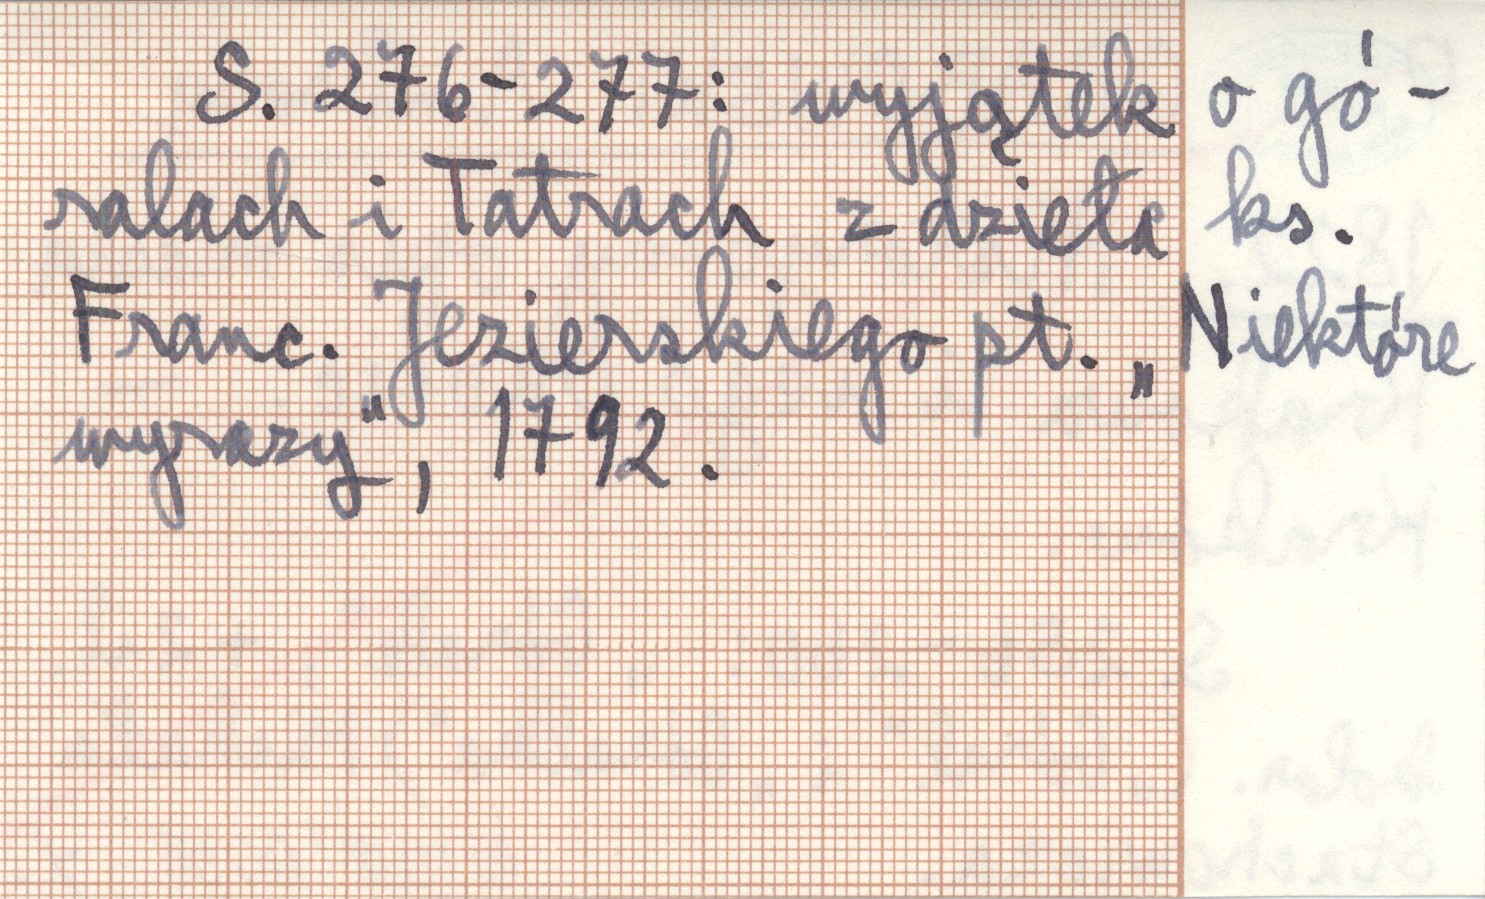 S. 276-277: wyjątek o gó-
ralach i Tatrach z dzieła ks.
Franc. Jezierskiego pt. „Niektóre
wyrazy", 1792.